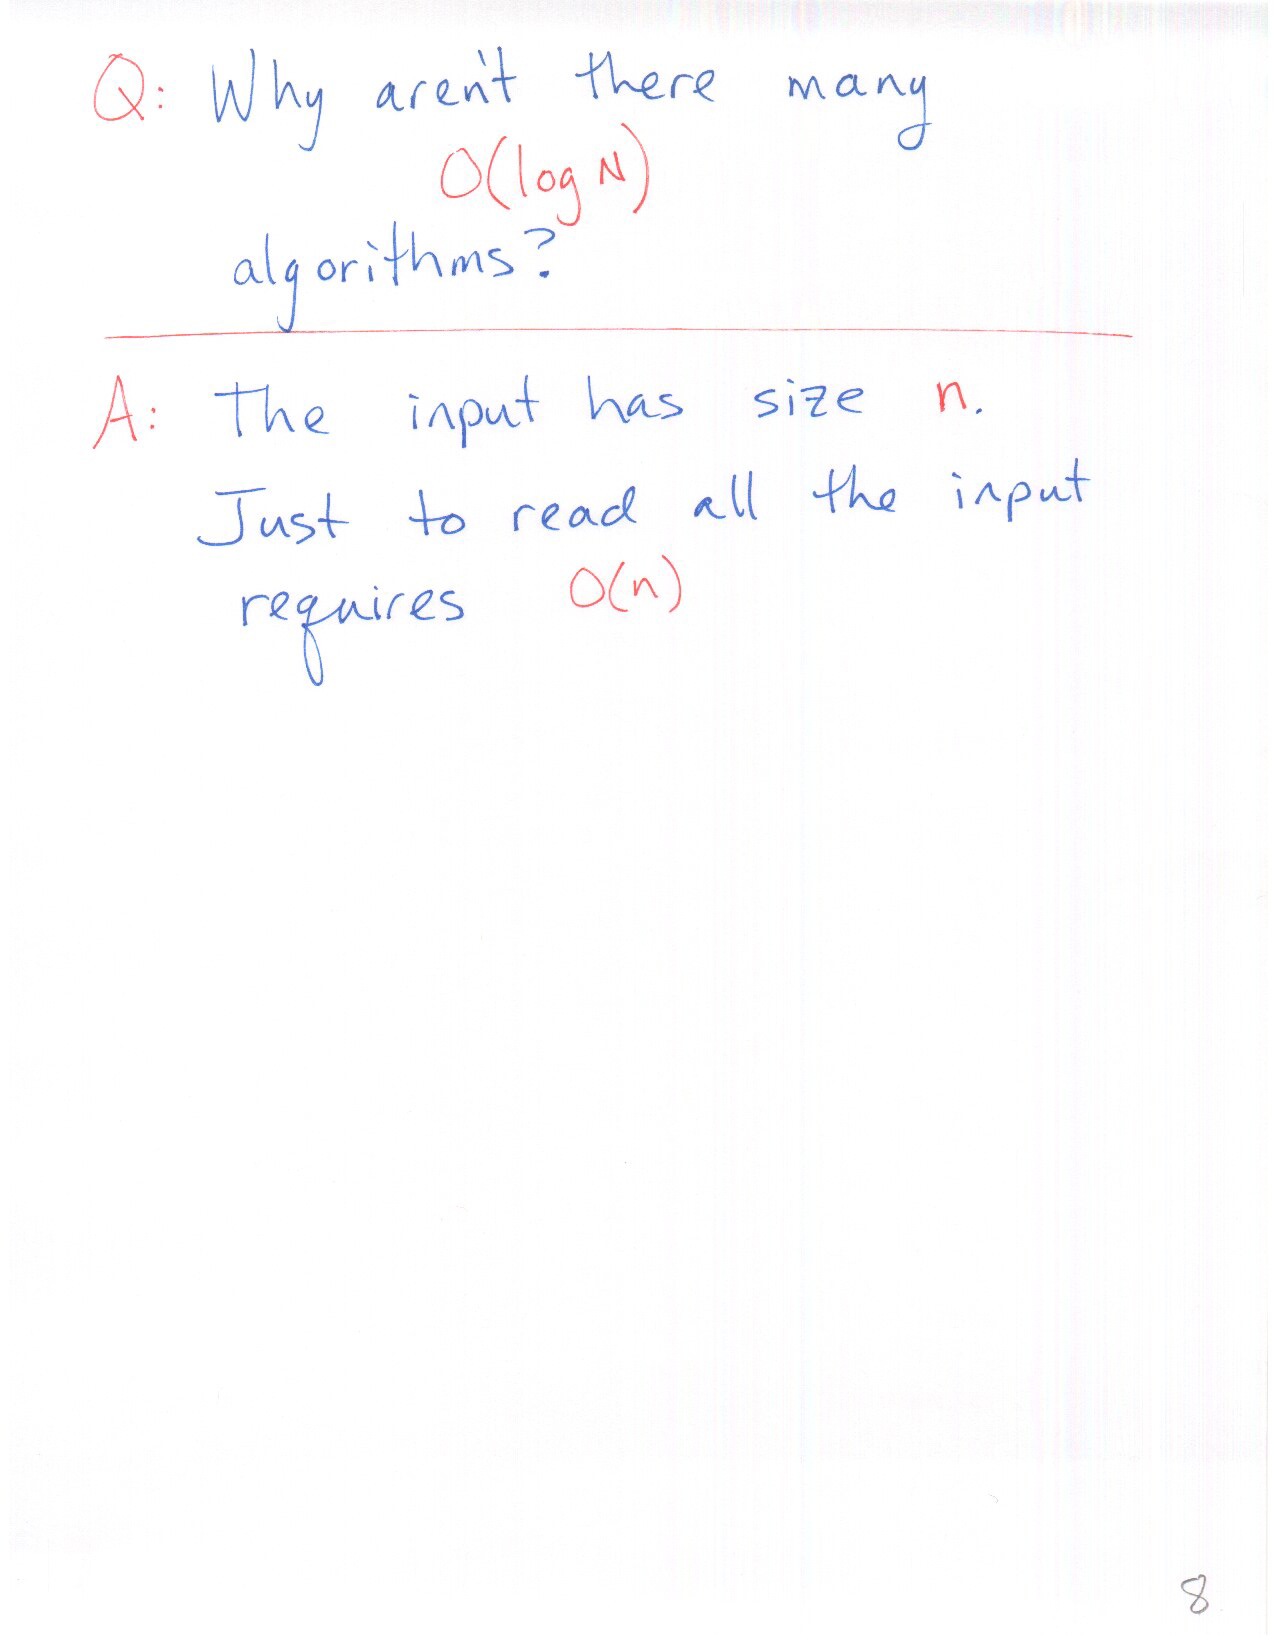 Q: Why aren't there many
O(log N)
algorithms?
A: The input has size n.
Just to read all the input
requires O(n)
8